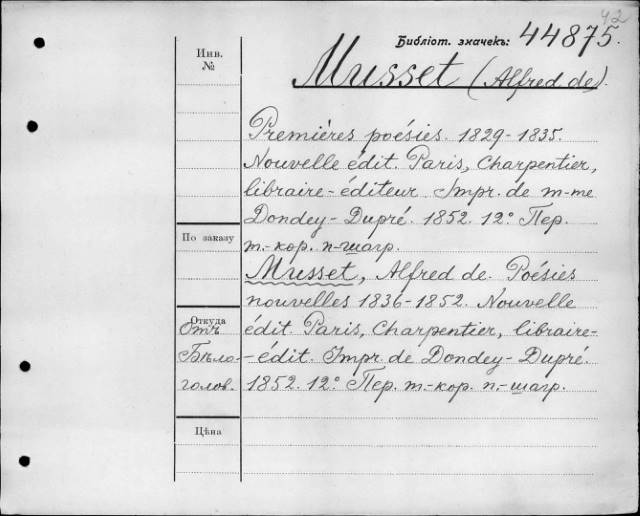 42
Библіот. значекъ: 44875.
Инв.
№
Musset (Alfred de).
Premières poésies. 1829-1835.
Nouvelle édit. Paris, Charpentier,
libraire-éditeur. Impr. de m-me
Dondey-Dupré. 1852. 12° Пер.
т.-кор. п-шагр.
По заказу
Musset, Alfred de. Poésies
nouvelles 1836-1852. Nouvelle
édit. Paris, Charpentier, libraire-
-édit. Impr. de Dondey-Dupré.
1852. 12° Пер. т.-кор. п.-шагр.
Откуда
Отъ
Бѣло-
голов.
Цѣна